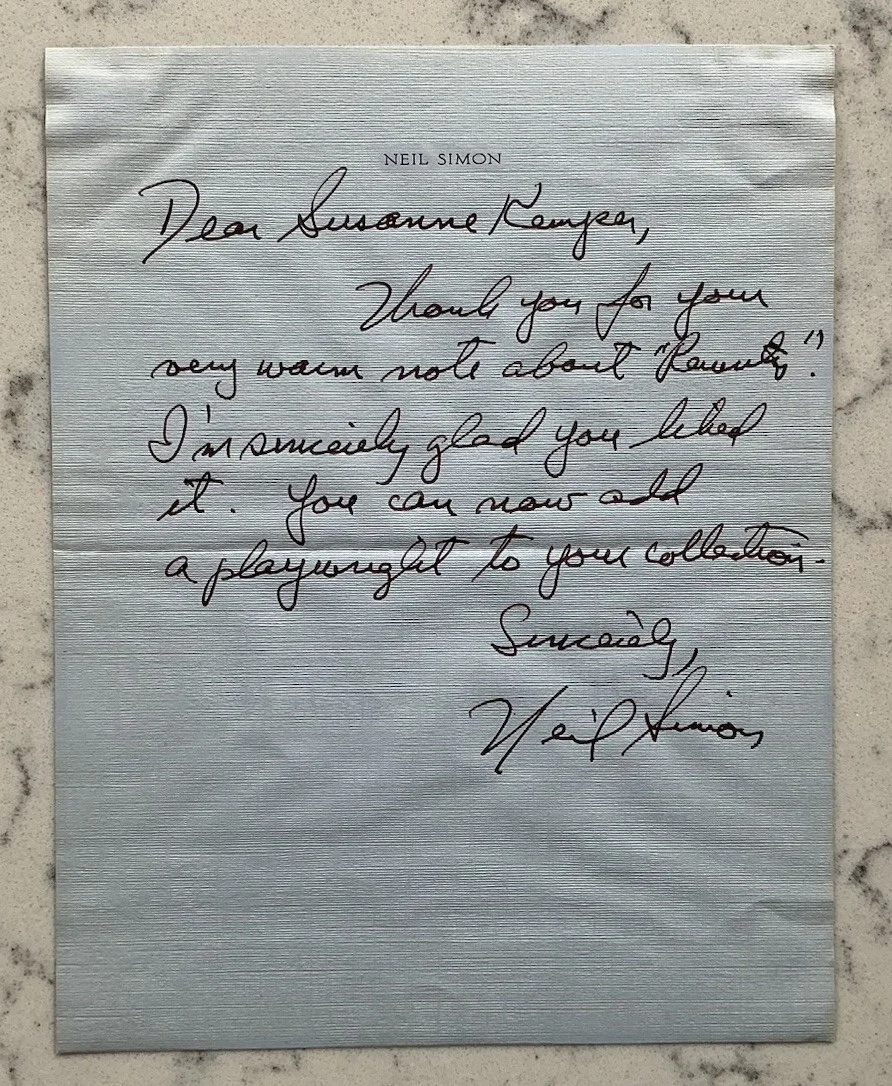 NEIL SIMON
Dear Susanne Kemper,
Thank you for your
very warm note about "Rewrites".
I'm sincerely glad you liked
it. You can now add
a playwright to your collection.
Sincerely,
Neil Simon